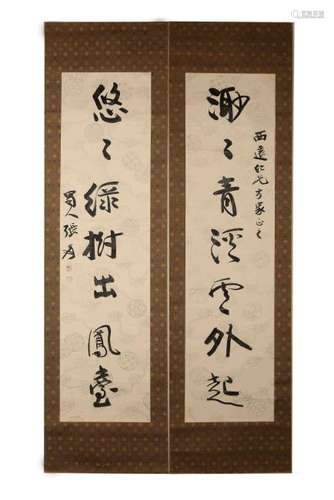 西遠仁兄方家正之
渺々青溪雲外起
悠々綠樹出鳳臺
蜀人張爰